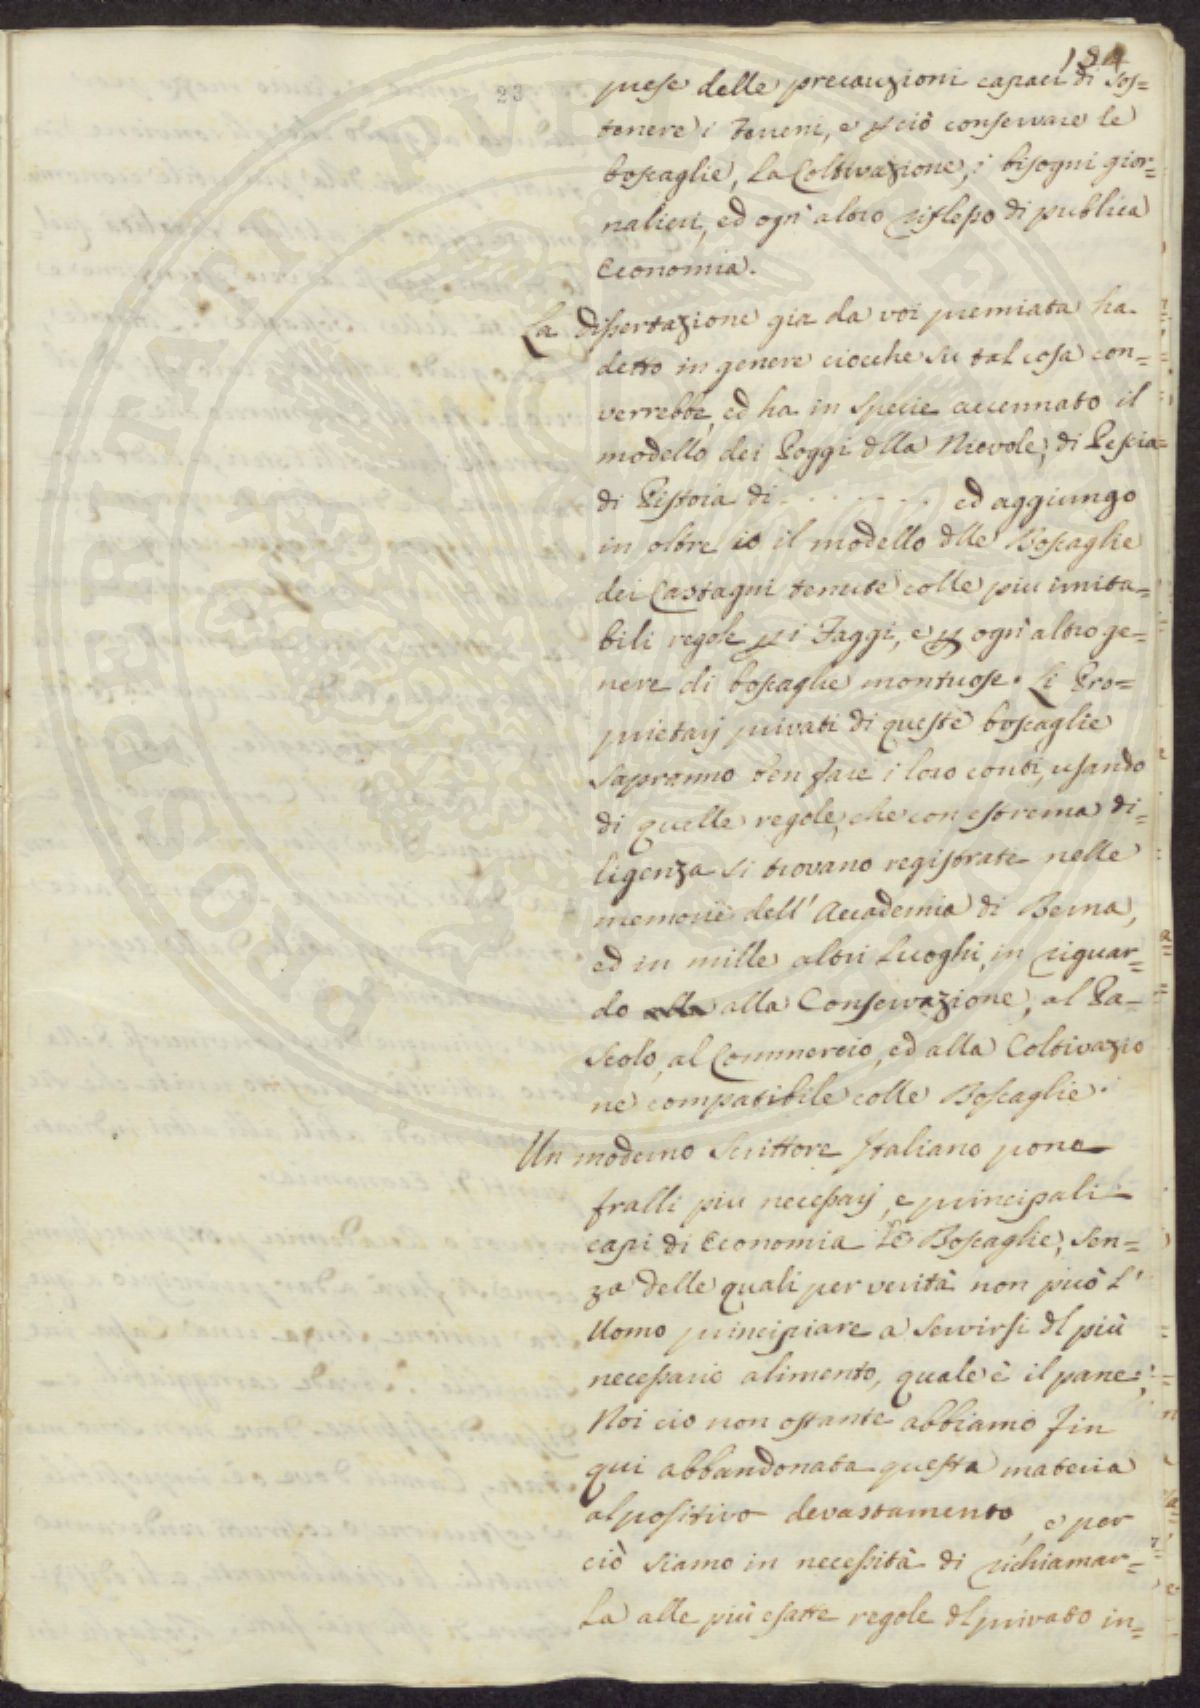 184
23
prese delle precauzioni capaci di sos=
tenere i terreni, e pciò conservare le
boscaglie, La Coltivazione, i bisogni gior=
nalieri, ed ogn' altro riflesso di publica
Economia.
La dissertazione gia da voi premiata ha
detto in genere ciocche su tal cosa con=
verrebbe, ed ha in specie accennato il
modello dei Poggi dlla Nievole, di Pescia=
di Pistoia di . . . . . . . ed aggiungo
in oltre io il modello dlle Boscaglie
dei Castagni tenute colle piu imita=
bili regole p i Faggi, e p ogn' altro ge=
nere di boscaglie montuose. Li Pro=
prietarj privati di queste boscaglie
sapranno ben fare i loro conti, usando
di quelle regole, che con estrema di=
ligenza si trovano registrate nelle
memorie dell' Accademia di Berna,
ed in mille altri Luoghi, in riguar=
do alla alla Conservazione, al Pa=
scolo, al Commercio, ed alla Coltivazio
ne compatibile colle Boscaglie.
Un moderno Scrittore Italiano pone
fralli piu necessarj, e principali
capi di Economia Le Boscaglie, sen=
za delle quali per verità non può L'
Uomo principiare a servirsi dl più
necessario alimento, quale è il pane;
Noi cio non ostante abbiamo fin
qui abbandonata questa materia
al positivo devastamento, e per
ciò siamo in necessità di richiamar=
La alle più esatte regole dl privato in=
PROSPERITATI PUBLICAE